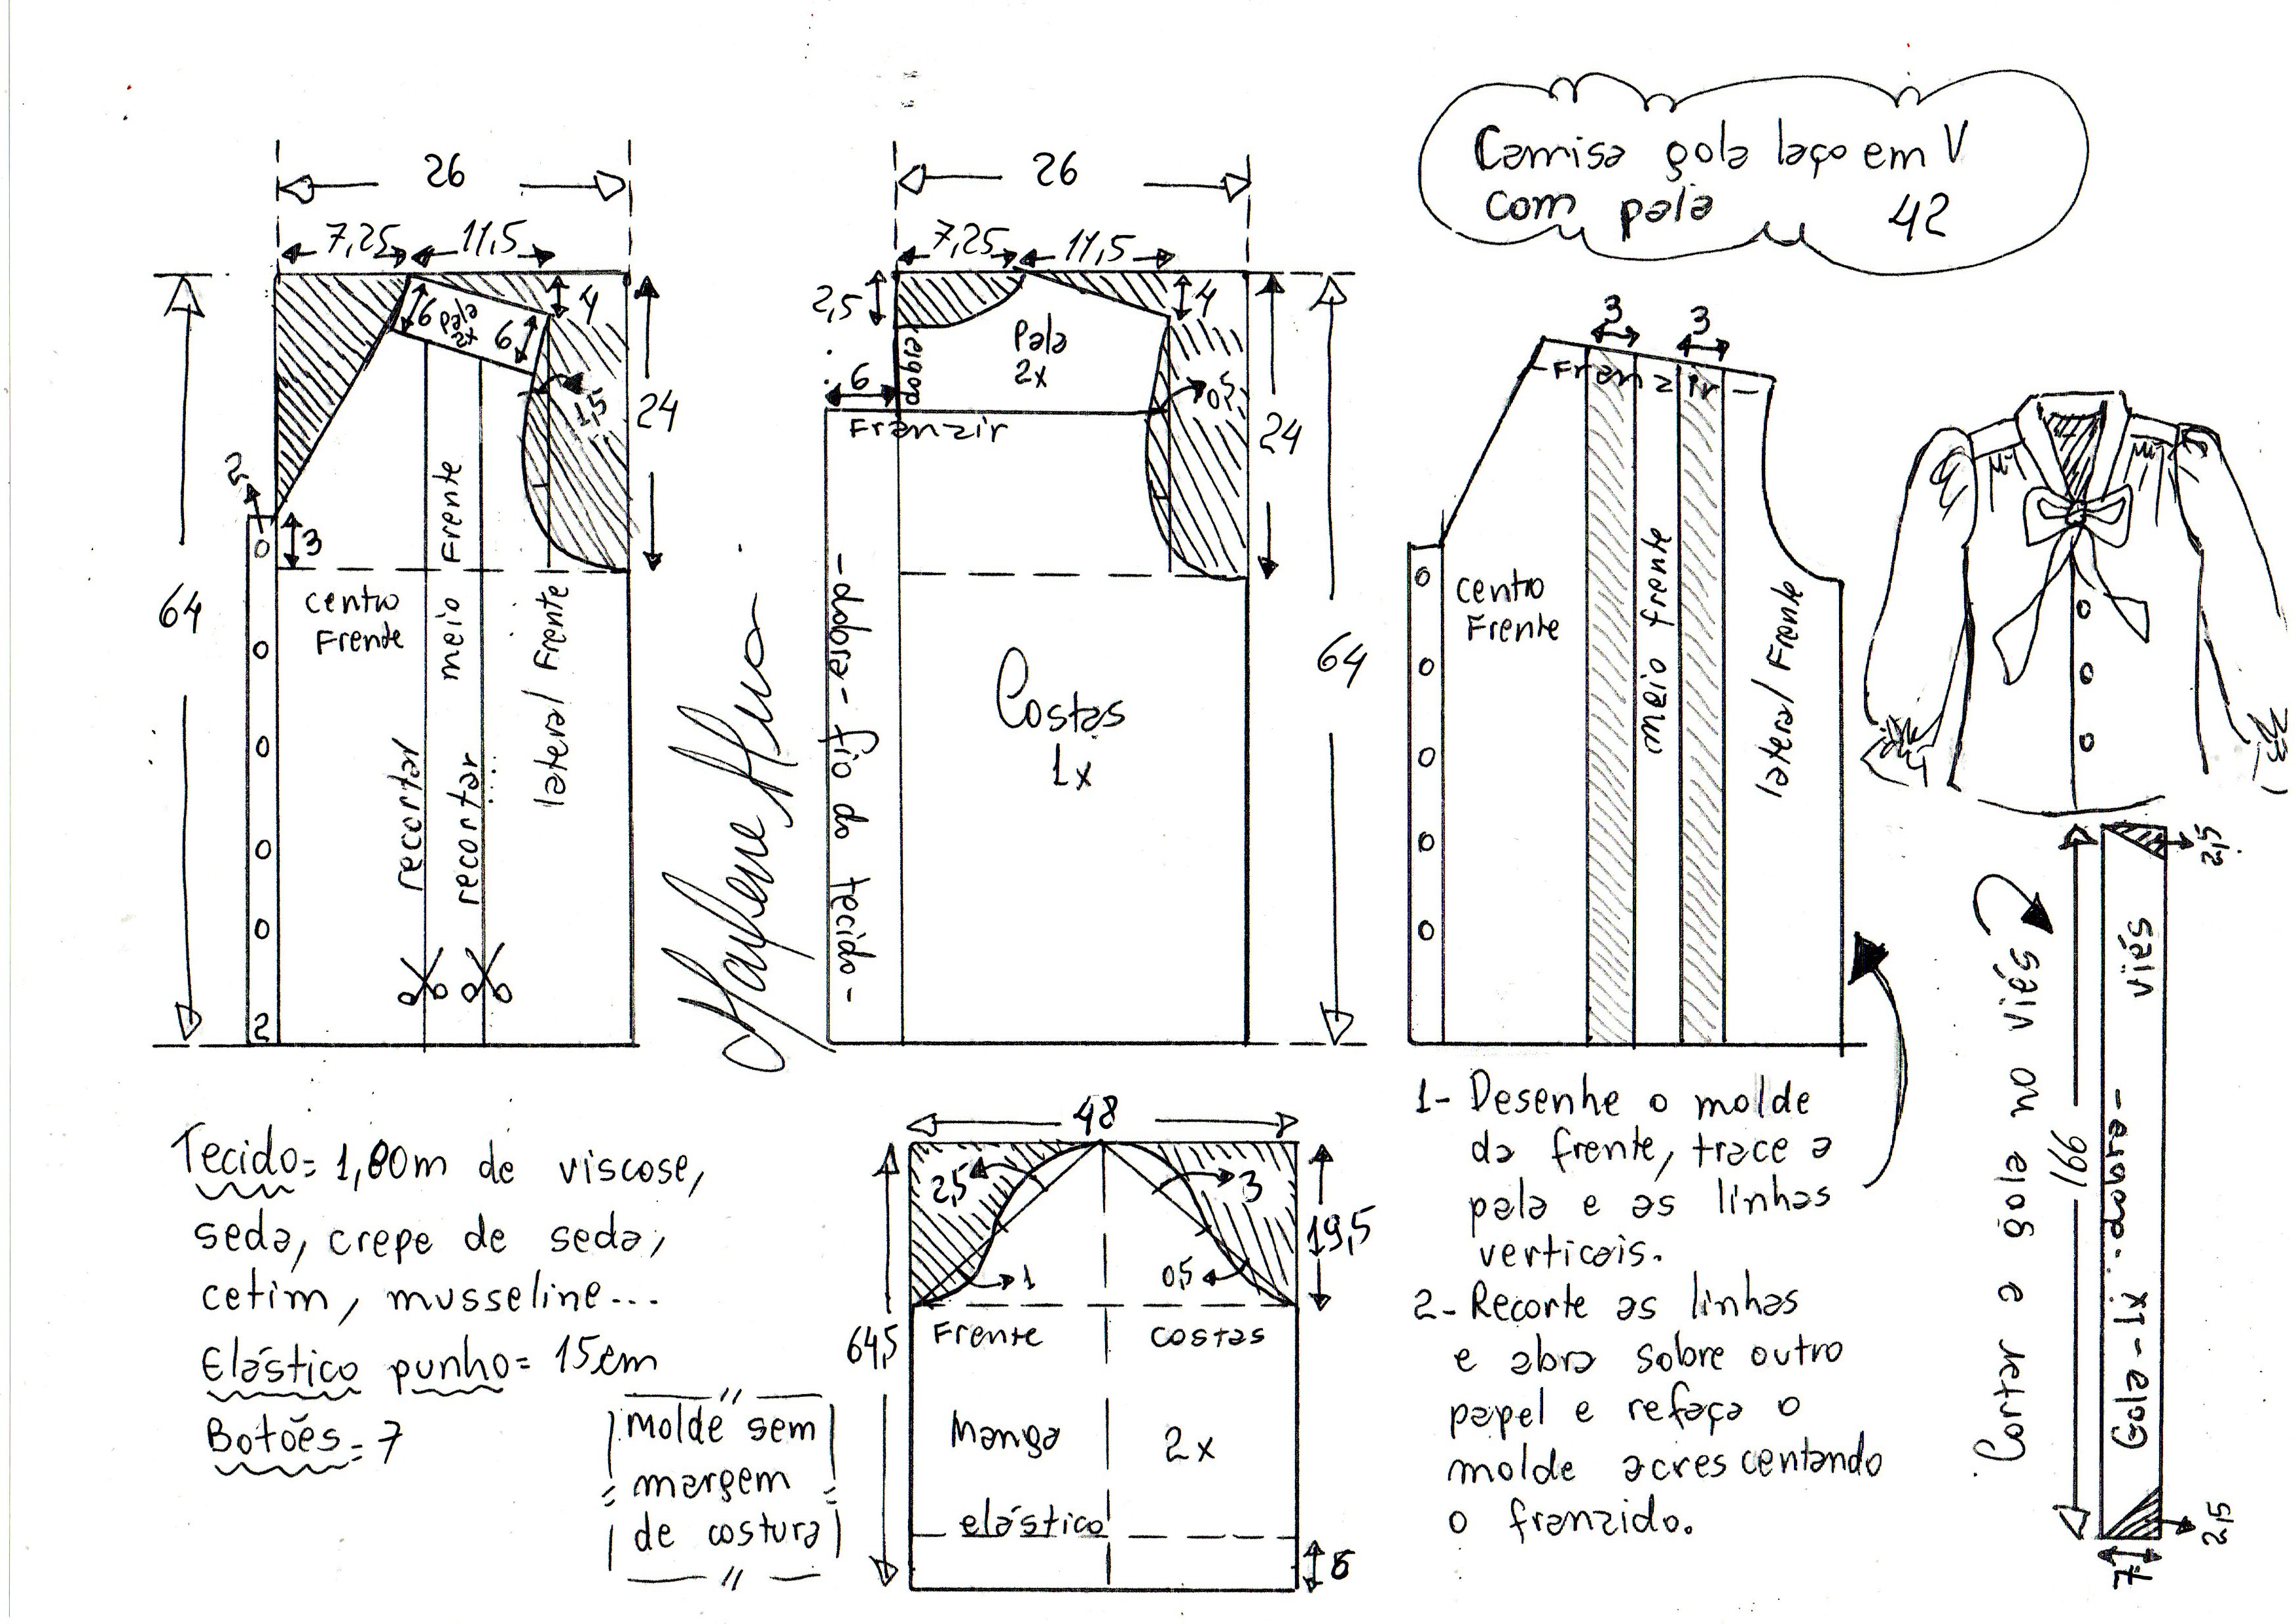 Camisa gola laço em V
com pala 42
26
7,25 11,5
6 Pala 2x 6
4
1,5
24
2
3
64
centro
Frente
meio Frente
lateral Frente
recortar
recortar...
2
26
7,25 11,5
2,5
4
Pala
2x
dobra
6
0,5
Franzir
24
64
-dobra- fio do tecido-
Costas
1x
3 3
-Franzir-
centro
Frente
meio frente
lateral Frente
Tecido= 1,80m de viscose,
seda, crepe de seda,
cetim, musseline...
Elástico punho= 15cm
Botões= 7
molde sem
margem
de costura
48
2,5
3
19,5
1
0,5
Frente costas
64,5
Manga 2x
elástico
6
1- Desenhe o molde
da frente, trace a
pala e as linhas
verticais.
2- Recorte as linhas
e abra sobre outro
papel e refaça o
molde acrescentando
o franzido.
Cortar a gola no viés
199
2,5
viés
-dobra-
Gola-1x
2,5
7